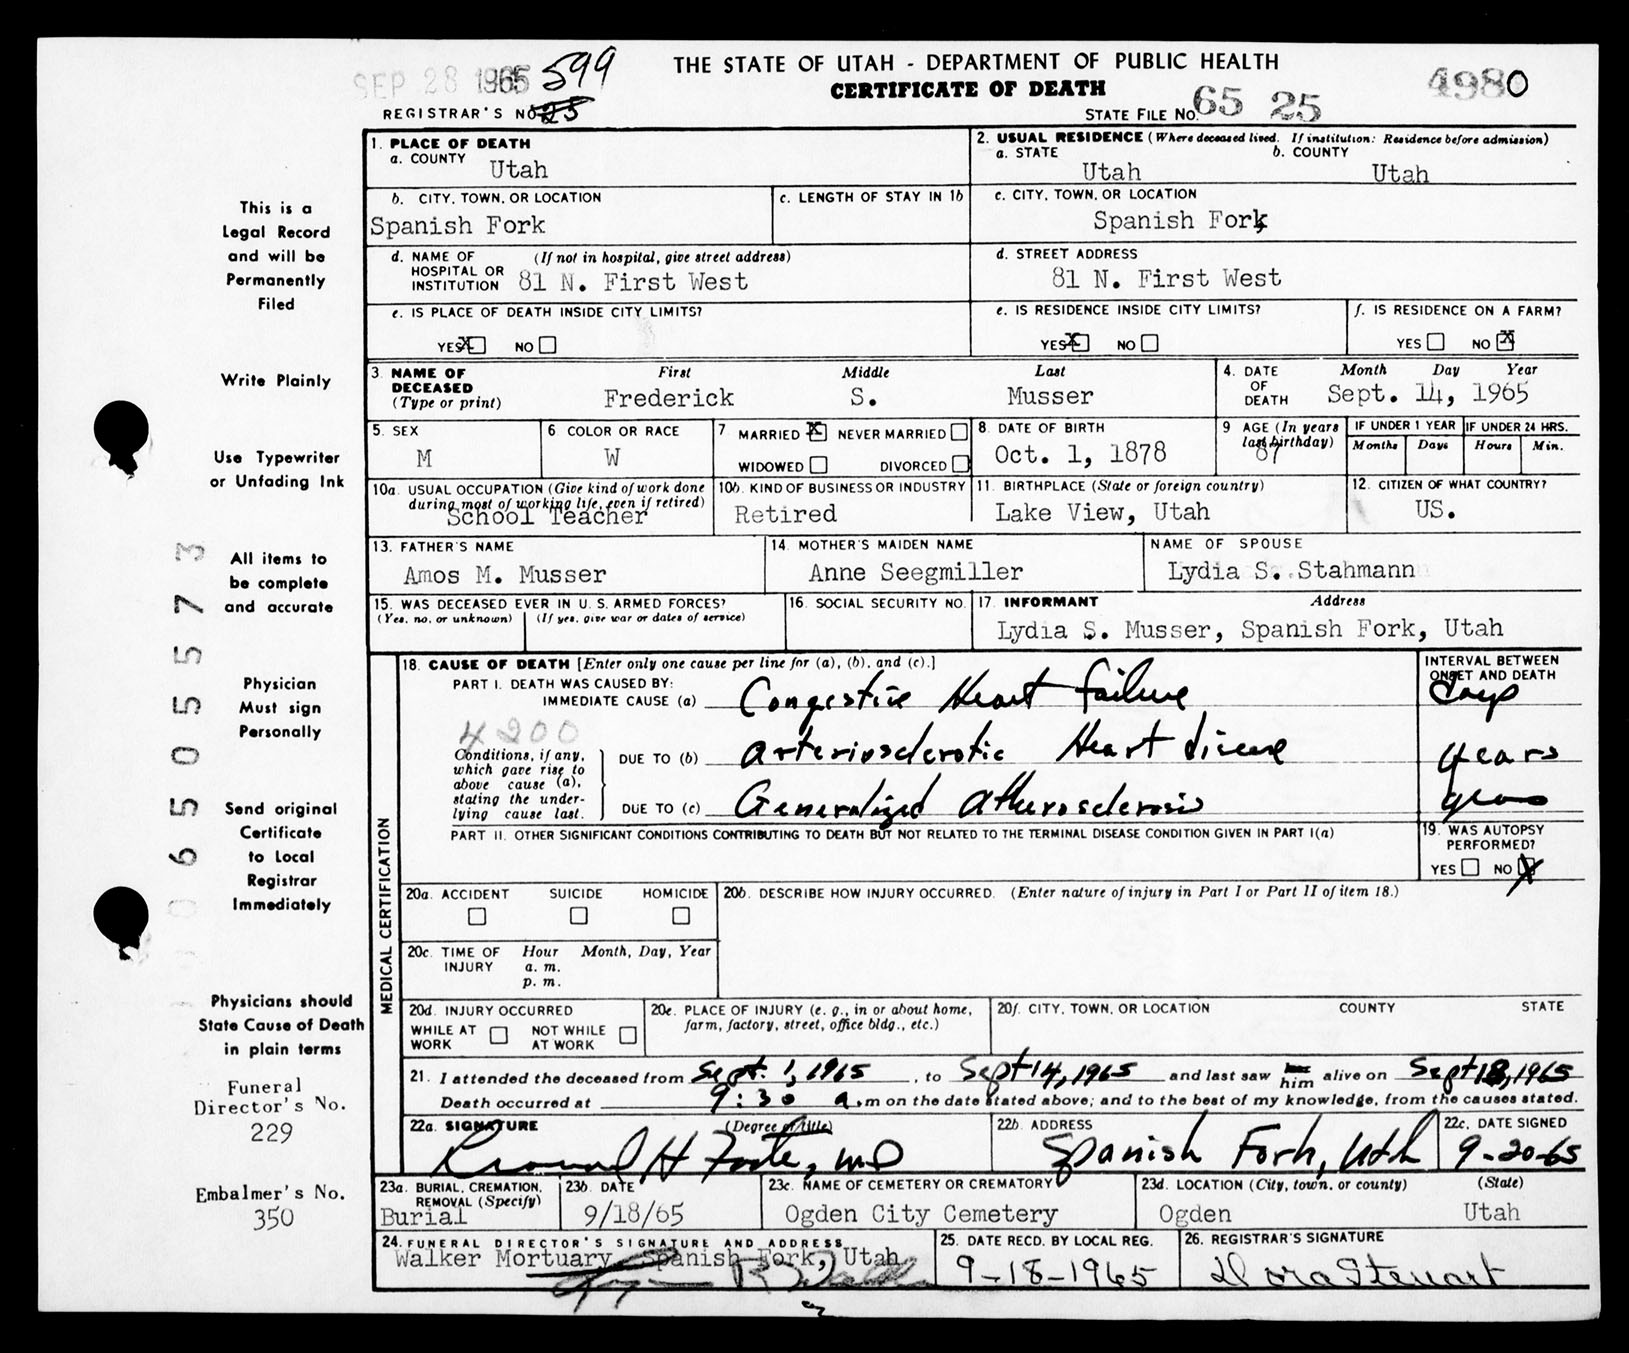 SEP 28 1965 599
THE STATE OF UTAH - DEPARTMENT OF PUBLIC HEALTH
CERTIFICATE OF DEATH
4980
REGISTRAR'S NO. 25
STATE FILE NO. 65 25
1. PLACE OF DEATH
a. COUNTY Utah
2. USUAL RESIDENCE (Where deceased lived. If institution: Residence before admission)
a. STATE Utah b. COUNTY Utah
b. CITY, TOWN, OR LOCATION Spanish Fork
c. LENGTH OF STAY IN 1b
c. CITY, TOWN, OR LOCATION Spanish Fork
d. NAME OF HOSPITAL OR INSTITUTION (If not in hospital, give street address) 81 N. First West
d. STREET ADDRESS 81 N. First West
e. IS PLACE OF DEATH INSIDE CITY LIMITS? YES X NO
e. IS RESIDENCE INSIDE CITY LIMITS? YES X NO
f. IS RESIDENCE ON A FARM? YES NO X
3. NAME OF DECEASED (Type or print) First Frederick Middle S. Last Musser
4. DATE OF DEATH Month Day Year Sept. 14, 1965
5. SEX M
6 COLOR OR RACE W
7 MARRIED X NEVER MARRIED WIDOWED DIVORCED
8. DATE OF BIRTH Oct. 1, 1878
9 AGE (In years last birthday) 87
IF UNDER 1 YEAR Months Days
IF UNDER 24 HRS. Hours Min.
10a. USUAL OCCUPATION (Give kind of work done during most of working life, even if retired) School Teacher
10b. KIND OF BUSINESS OR INDUSTRY Retired
11. BIRTHPLACE (State or foreign country) Lake View, Utah
12. CITIZEN OF WHAT COUNTRY? US.
13. FATHER'S NAME Amos M. Musser
14. MOTHER'S MAIDEN NAME Anne Seegmiller
NAME OF SPOUSE Lydia S. Stahmann
15. WAS DECEASED EVER IN U.S. ARMED FORCES? (Yes, no, or unknown) (If yes, give war or dates of service)
16. SOCIAL SECURITY NO.
17. INFORMANT Address Lydia S. Musser, Spanish Fork, Utah
MEDICAL CERTIFICATION
18. CAUSE OF DEATH [Enter only one cause per line for (a), (b), and (c).]
INTERVAL BETWEEN ONSET AND DEATH
PART I. DEATH WAS CAUSED BY:
IMMEDIATE CAUSE (a) Congestive Heart failure days
4200
Conditions, if any, which gave rise to above cause (a), stating the underlying cause last.
DUE TO (b) Arteriosclerotic Heart disease years
DUE TO (c) Generalized Atherosclerosis years
PART II. OTHER SIGNIFICANT CONDITIONS CONTRIBUTING TO DEATH BUT NOT RELATED TO THE TERMINAL DISEASE CONDITION GIVEN IN PART I(a)
19. WAS AUTOPSY PERFORMED? YES NO X
20a. ACCIDENT SUICIDE HOMICIDE
20b. DESCRIBE HOW INJURY OCCURRED. (Enter nature of injury in Part I or Part II of item 18.)
20c. TIME OF INJURY Hour a.m. p.m. Month, Day, Year
20d. INJURY OCCURRED WHILE AT WORK NOT WHILE AT WORK
20e. PLACE OF INJURY (e. g., in or about home, farm, factory, street, office bldg., etc.)
20f. CITY, TOWN, OR LOCATION COUNTY STATE
21. I attended the deceased from Sept. 1, 1965, to Sept 14, 1965 and last saw him alive on Sept 13, 1965
Death occurred at 9:30 a.m on the date stated above; and to the best of my knowledge, from the causes stated.
22a. SIGNATURE (Degree or title) H Foote, MD
22b. ADDRESS Spanish Fork, Utah
22c. DATE SIGNED 9-20-65
23a. BURIAL, CREMATION, REMOVAL (Specify) Burial
23b. DATE 9/18/65
23c. NAME OF CEMETERY OR CREMATORY Ogden City Cemetery
23d. LOCATION (City, town, or county) (State) Ogden Utah
24. FUNERAL DIRECTOR'S SIGNATURE AND ADDRESS Walker Mortuary Spanish Fork, Utah
25. DATE RECD. BY LOCAL REG. 9-18-1965
26. REGISTRAR'S SIGNATURE Dora Stewart
This is a
Legal Record
and will be
Permanently
Filed
Write Plainly
Use Typewriter
or Unfading Ink
All items to
be complete
and accurate
Physician
Must sign
Personally
Send original
Certificate
to Local
Registrar
Immediately
Physicians should
State Cause of Death
in plain terms
Funeral
Director's No.
229
Embalmer's No.
350